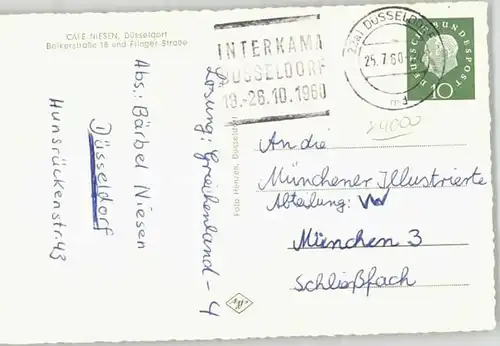 CAFE NIESEN, Düsseldorf
Bolkerstraße 18 und Flinger-Straße
Abs.: Bärbel Niesen
Düsseldorf
Hunsrückenstr. 43
Losung: Griechenland - 4
Foto Henzen, Düsseldorf
INTERKAMA
DÜSSELDORF
19.-26.10.1960
(22a) DÜSSELDORF
25.7.60
md
DEUTSCHE BUNDESPOST
10
24000
An die
Münchener Illustrierte
Abteilung:
München 3
Schließfach